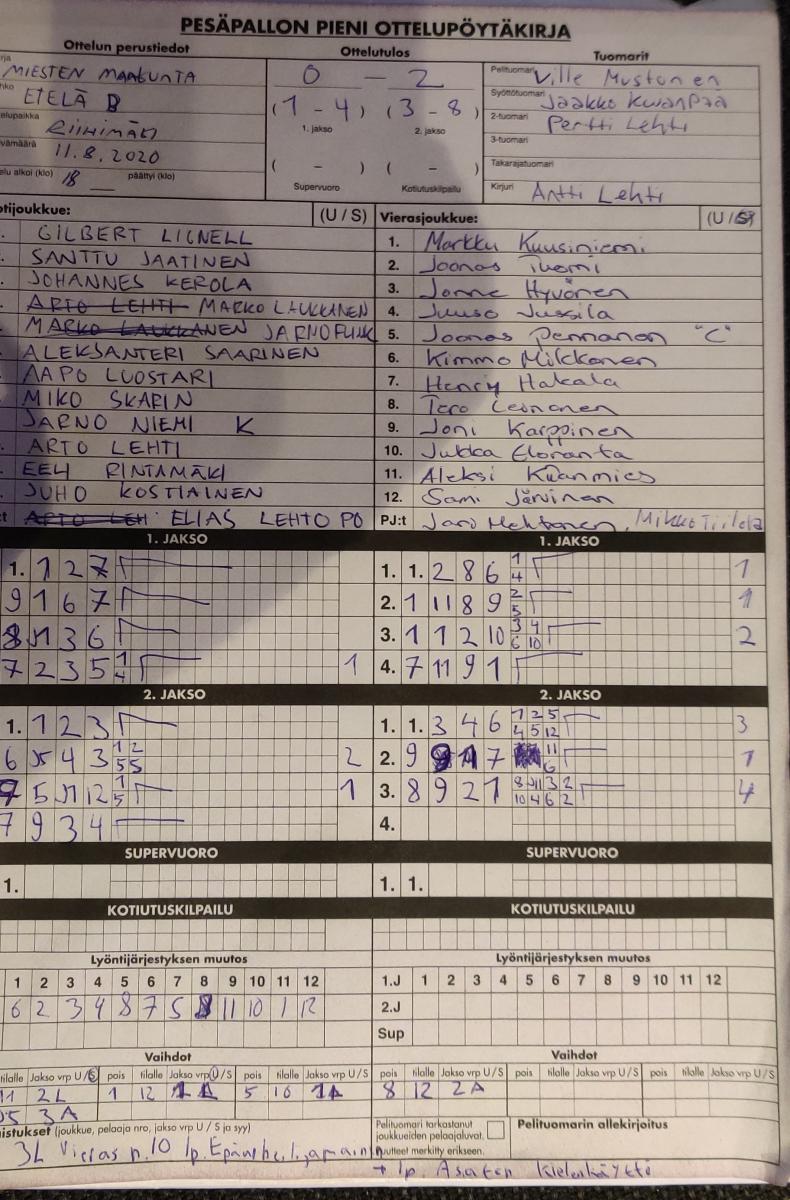 PESÄPALLON PIENI OTTELUPÖYTÄKIRJA
Ottelun perustiedot Ottelutulos Tuomarit
MIESTEN MAAKUNTA
ETELÄ B
elupaikka RIIHIMÄKI
vämäärä 11.8.2020
elu alkoi (klo) 18 päättyi (klo)
0 - 2
(1 - 4) (3 - 8)
1. jakso 2. jakso
( - ) ( - )
Supervuoro Kotiutuskilpailu
Pelituomari Ville Mustonen
Syöttötuomari Jaakko
2-tuomari Pertti Lehti
3-tuomari
Takarajatuomari
Kirjuri Antti Lehti
tijoukkue: (U / S)
GILBERT LIGNELL
SANTTU JAATINEN
JOHANNES KEROLA
ARTO LEHTI MARKO LAUKKANEN
MARKO LAUKKANEN JARNO FUNK
ALEKSANTERI SAARINEN
AAPO LUOSTARI
MIKO SKARIN
JARNO NIEMI K
ARTO LEHTI
EELI RINTAMÄKI
JUHO KOSTIAINEN
ARTO LEH ELIAS LEHTO PO
Vierasjoukkue: (U / S)
1. Markku Kuusiniemi
2. Joonas Tuomi
3. Jonne Hyvönen
4. Juuso Jussila
5. Joonas Pennanen "C"
6. Kimmo Mikkonen
7. Henry Hakala
8. Tero Leinonen
9. Joni Karppinen
10. Jukka Eloranta
11. Aleksi
12. Sami Järvinen
PJ:t Jani Mehtonen, Mikko Tiilola
1. JAKSO 1. JAKSO
1. 1 2 7
9 1 6 7
3 6
7 2 3 5 1 4 1
1. 1. 2 8 6 1 4 1
2. 1 11 8 9 2 5 1
3. 1 1 2 10 3 4 6 10 2
4. 7 11 9 1
2. JAKSO 2. JAKSO
1. 1 2 3
6 4 3 1 2 5 5 2
9 5 12 1 5 1
7 9 3 4
1. 1. 3 4 6 1 2 5 4 5 12 3
2. 9 7 11 6 1
3. 8 9 2 1 8 11 3 2 10 4 6 2 4
4.
SUPERVUORO SUPERVUORO
1. 1. 1.
KOTIUTUSKILPAILU KOTIUTUSKILPAILU
Lyöntijärjestyksen muutos Lyöntijärjestyksen muutos
1 2 3 4 5 6 7 8 9 10 11 12 1.J 1 2 3 4 5 6 7 8 9 10 11 12
6 2 3 4 8 7 5 11 10 1 12 2.J
Sup
Vaihdot Vaihdot
tilalle Jakso vrp U/S pois tilalle Jakso vrp U/S pois tilalle Jakso vrp U/S pois tilalle Jakso vrp U/S pois tilalle Jakso vrp U/S pois tilalle Jakso vrp U/S
11 2L 1 12 1A 5 10 1A 8 12 2A
3A
istukset (joukkue, pelaaja nro, jakso vrp U / S ja syy)
3L Vieras n.10 lp.
+ lp. Asaton kielenkäyttö
Pelituomari tarkastanut
joukkueiden pelaajaluvat.
uutteet merkitty erikseen.
Pelituomarin allekirjoitus